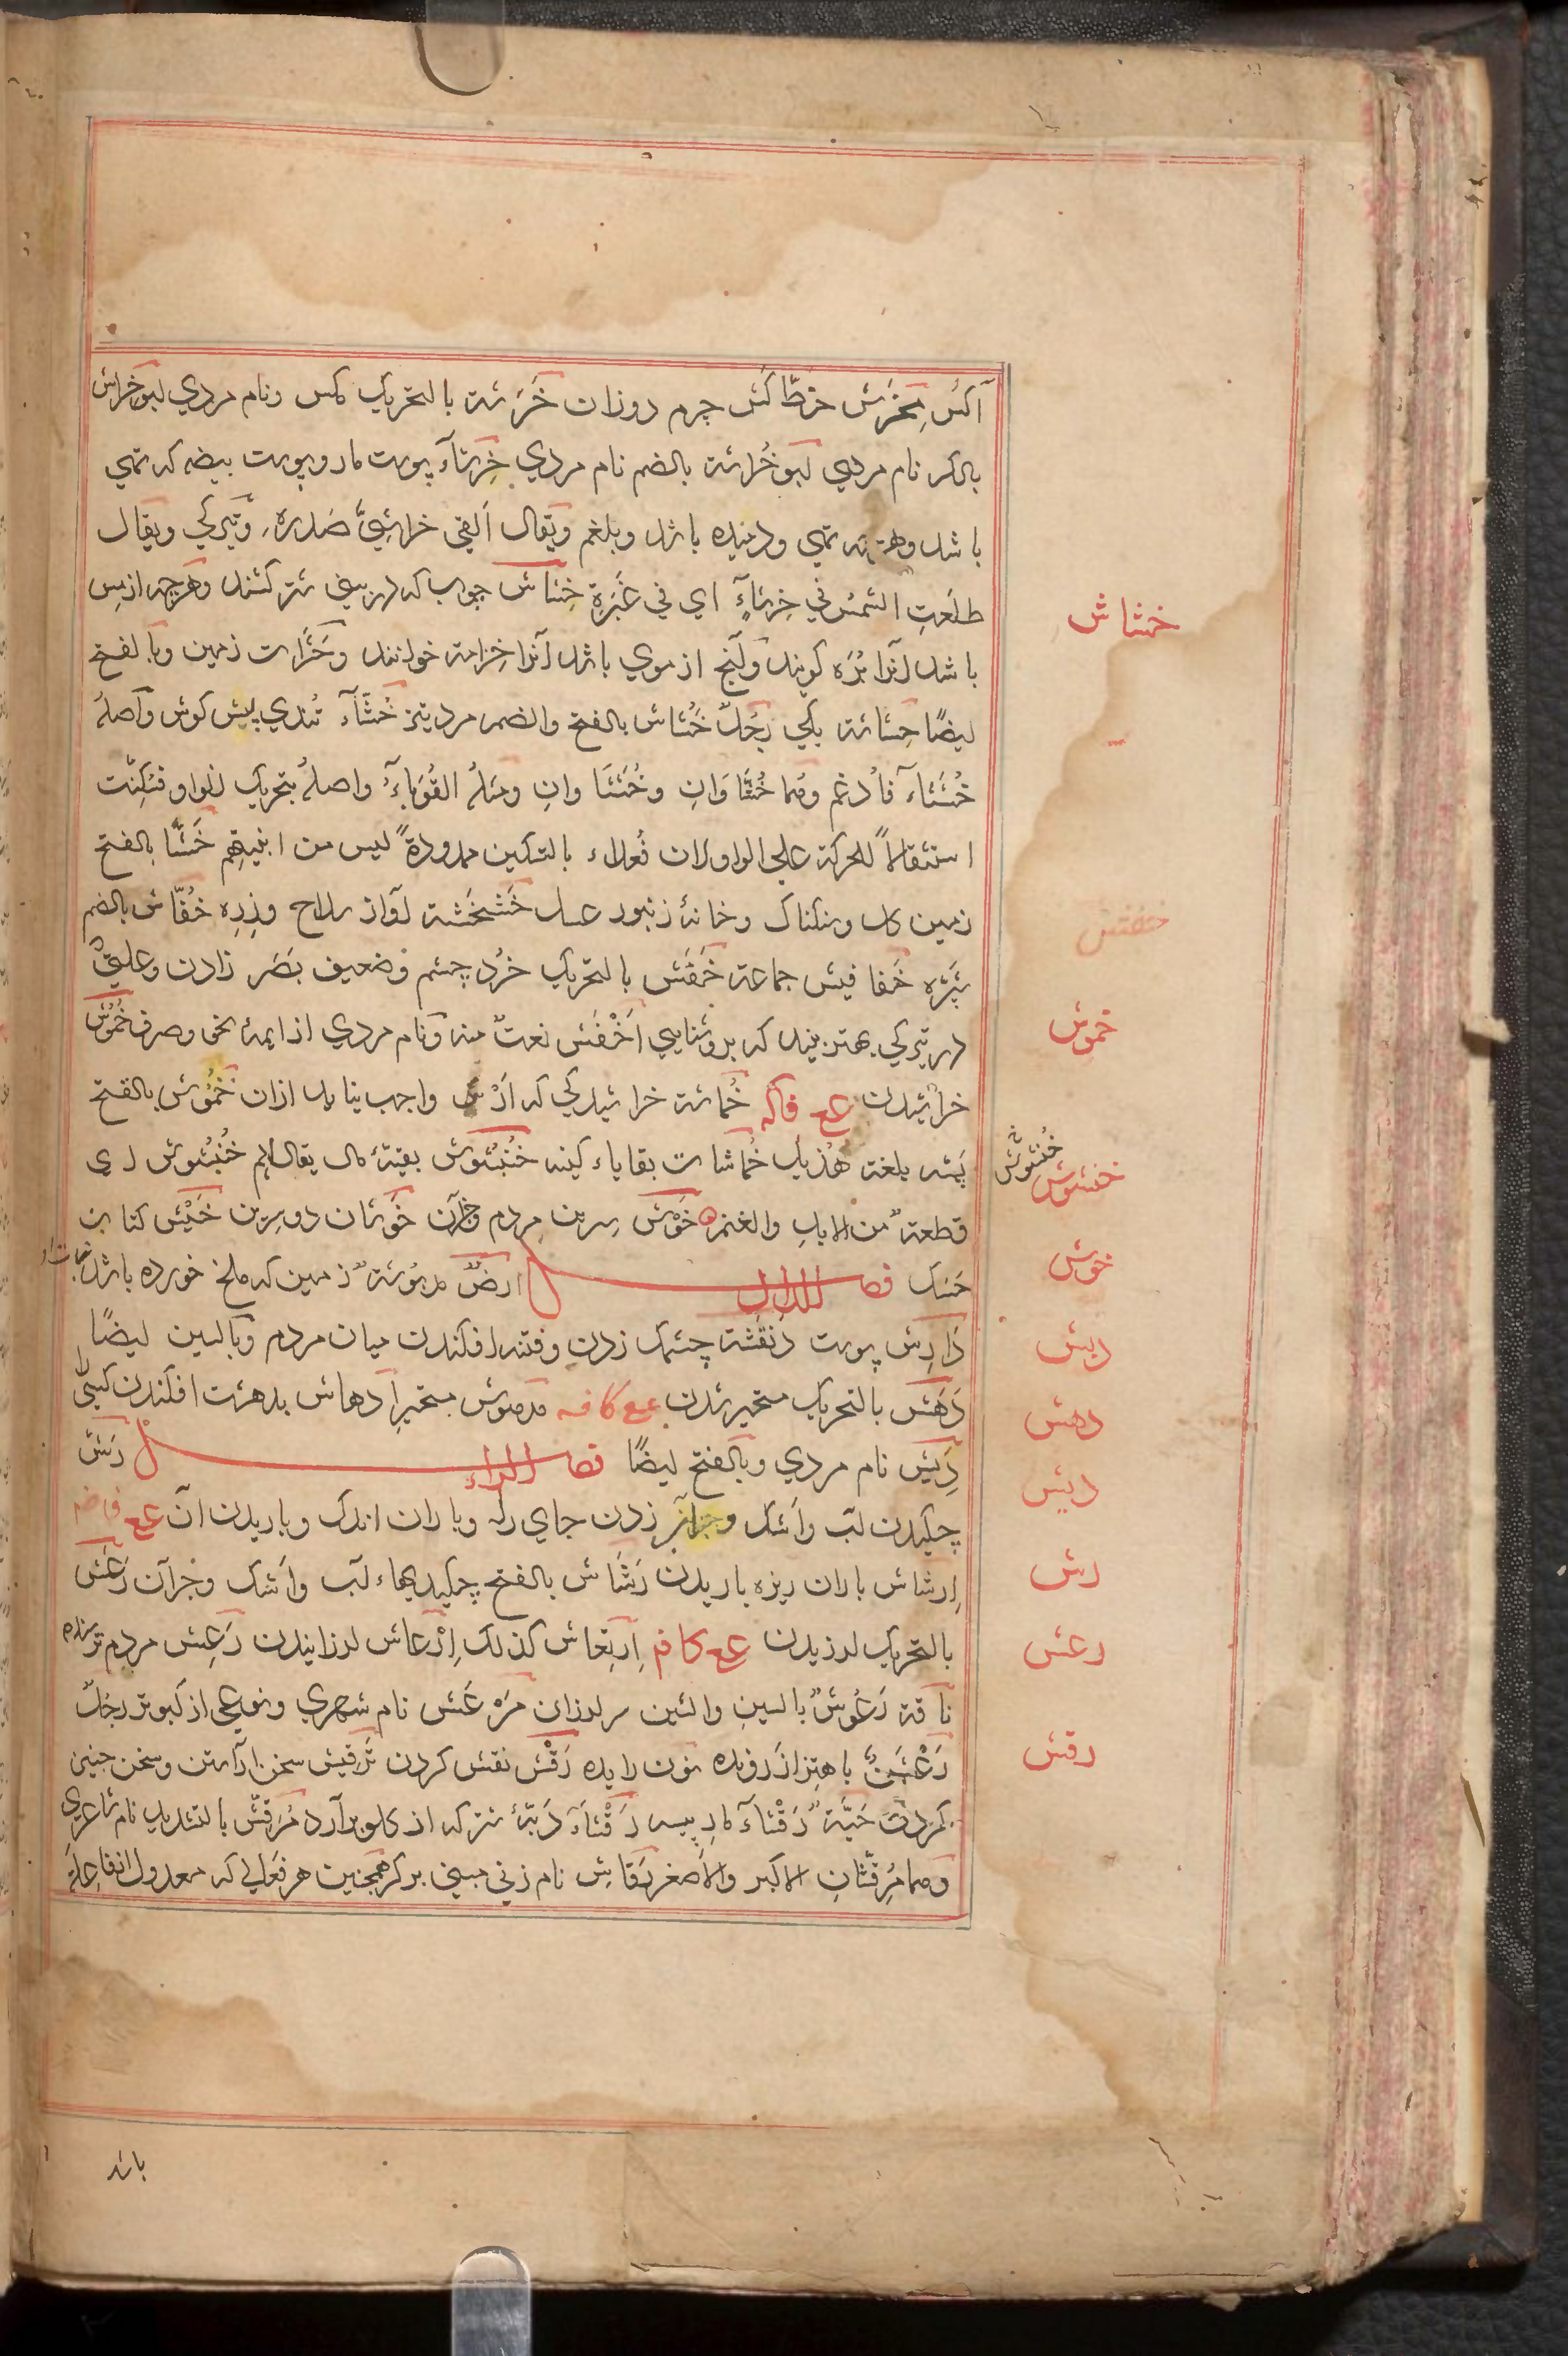 آکس مِخرَش خطّاکش چرم دوزان خَرَشة بالتحریک مکس ونام مردي ابو خراش
بالکسر نام مردي ابو خُراشة بالضم نام مردي خِرشآء پوست مار وپوست بیضه که تهي
باشد و تهي ودمیده باشد وبلغم ویقال اَلقي خراشِيَّ صَدرِه وتیرکي ویقال
طلَعَتِ الشمسُ في خِرشآءٍ اي في غَبَرةٍ خِشاش چوب که در بیني شتر کنند وهرچه از مس
باشد آنرا بُرَه کویند وآنچ از موي باشد آنرا خزامة خوانند وحَشَرات زمین وبالفتح
ایضًا خِشاشة یکي رَجُلٌ خُشاش بالفتح والضم مرد تیز خُشَّآء تُندي پیش کوش وَاصلهُ
خُشَشآء فاُدغم وهُما خُشَّاوَانِ وخُشَشَاوانِ ومثلهُ القُوَبآءُ واصلهُ بتحریک الواو فسُکِّنت
استثقالاً للحرکة علي الواو لان فُعلاء بالتسکین ممدودةً لیس من ابنیتهم خَشَّا بالفتح
زمین کل وسنکناک وخانهٔ زنبور عسل خَشخَشة آواز سلاح وزِرِه خُفّاش بالضم
شپّره خَفافیش جماعة خَفَش بالتحریک خرُد چشم وضعیف بَصَر زادن وعلتيٌ
در تیرکي بهتر بیند که بروشنایي اَخْفَش نعتٌ منه ونام مردي از ایمهٔ نحو وصرف خُمُش
خراشیدن عع فاکه خُماشة خراشیدکي که اَرْش واجب نیاید ازان خَمُوش بالفتح
پَشه بلغة هُذیل خُماشات بقایاء کینه خُنبُشوش بقیّهٔ مال یقال لهم خُنبُشوش اي
قطعةٌ من الابل والغنم خَوْش سِرین مردم وجزآن خَوشان دو سِرین خَیْش کتان
خَنک فصل الدال ارضٌ مدبُوشةٌ زمین که ملخ خورده باشد نبات او
دَارِش پوست دَنقَشة چشمک زدن وفتنه افکندن میان مردم وبالسین ایضًا
دَهَش بالتحریک متحیر شدن عع کافه مَدهوش متحیر اِدهاش بدهشت افکندن کسیرا
دِیش نام مردي وبالفتح ایضًا فصل الراء رَشّ
چکیدن آب واَشک وجزآن زدن جاي را وباران اندک وباریدن آن عع فاضم
اِرشاش باران ریزه باریدن رَشَاش بالفتح چکیدیهاء آب واَشک وجزآن رَعَش
بالتحریک لرزیدن عع کافه اِرتِعاش کذلک اِرْعاش لرزانیدن رَعِش مردم ترسنده
ناقة رَعُوشٌ بالسین والشین سر لرزان مَرْعَش نام شهري ونوعي از کبوتر رجُلٌ
رَعْشَنٌ باهتزاز رونده نون زایده رَقْش نقش کردن تَرقیش سخن آراستن وسخن چیني
کردن حَیَّةٌ رَقْشآء مار پیسه رَقْشآء دَبّهٔ شتر که از کلو برآرد مُرَقِّش بالتشدید نام شاعري
وهما مُرقّشانِ الاکبر والاصغر رَقاشِ نام زني مبني بر کسر همچنین هر فَعالي که معدول از فاعلة
باشد
خشاش
خفش
خموش
خنشوش
خُنبُشوش
خوش
دبش
دهش
دیش
رش
رعش
رقش